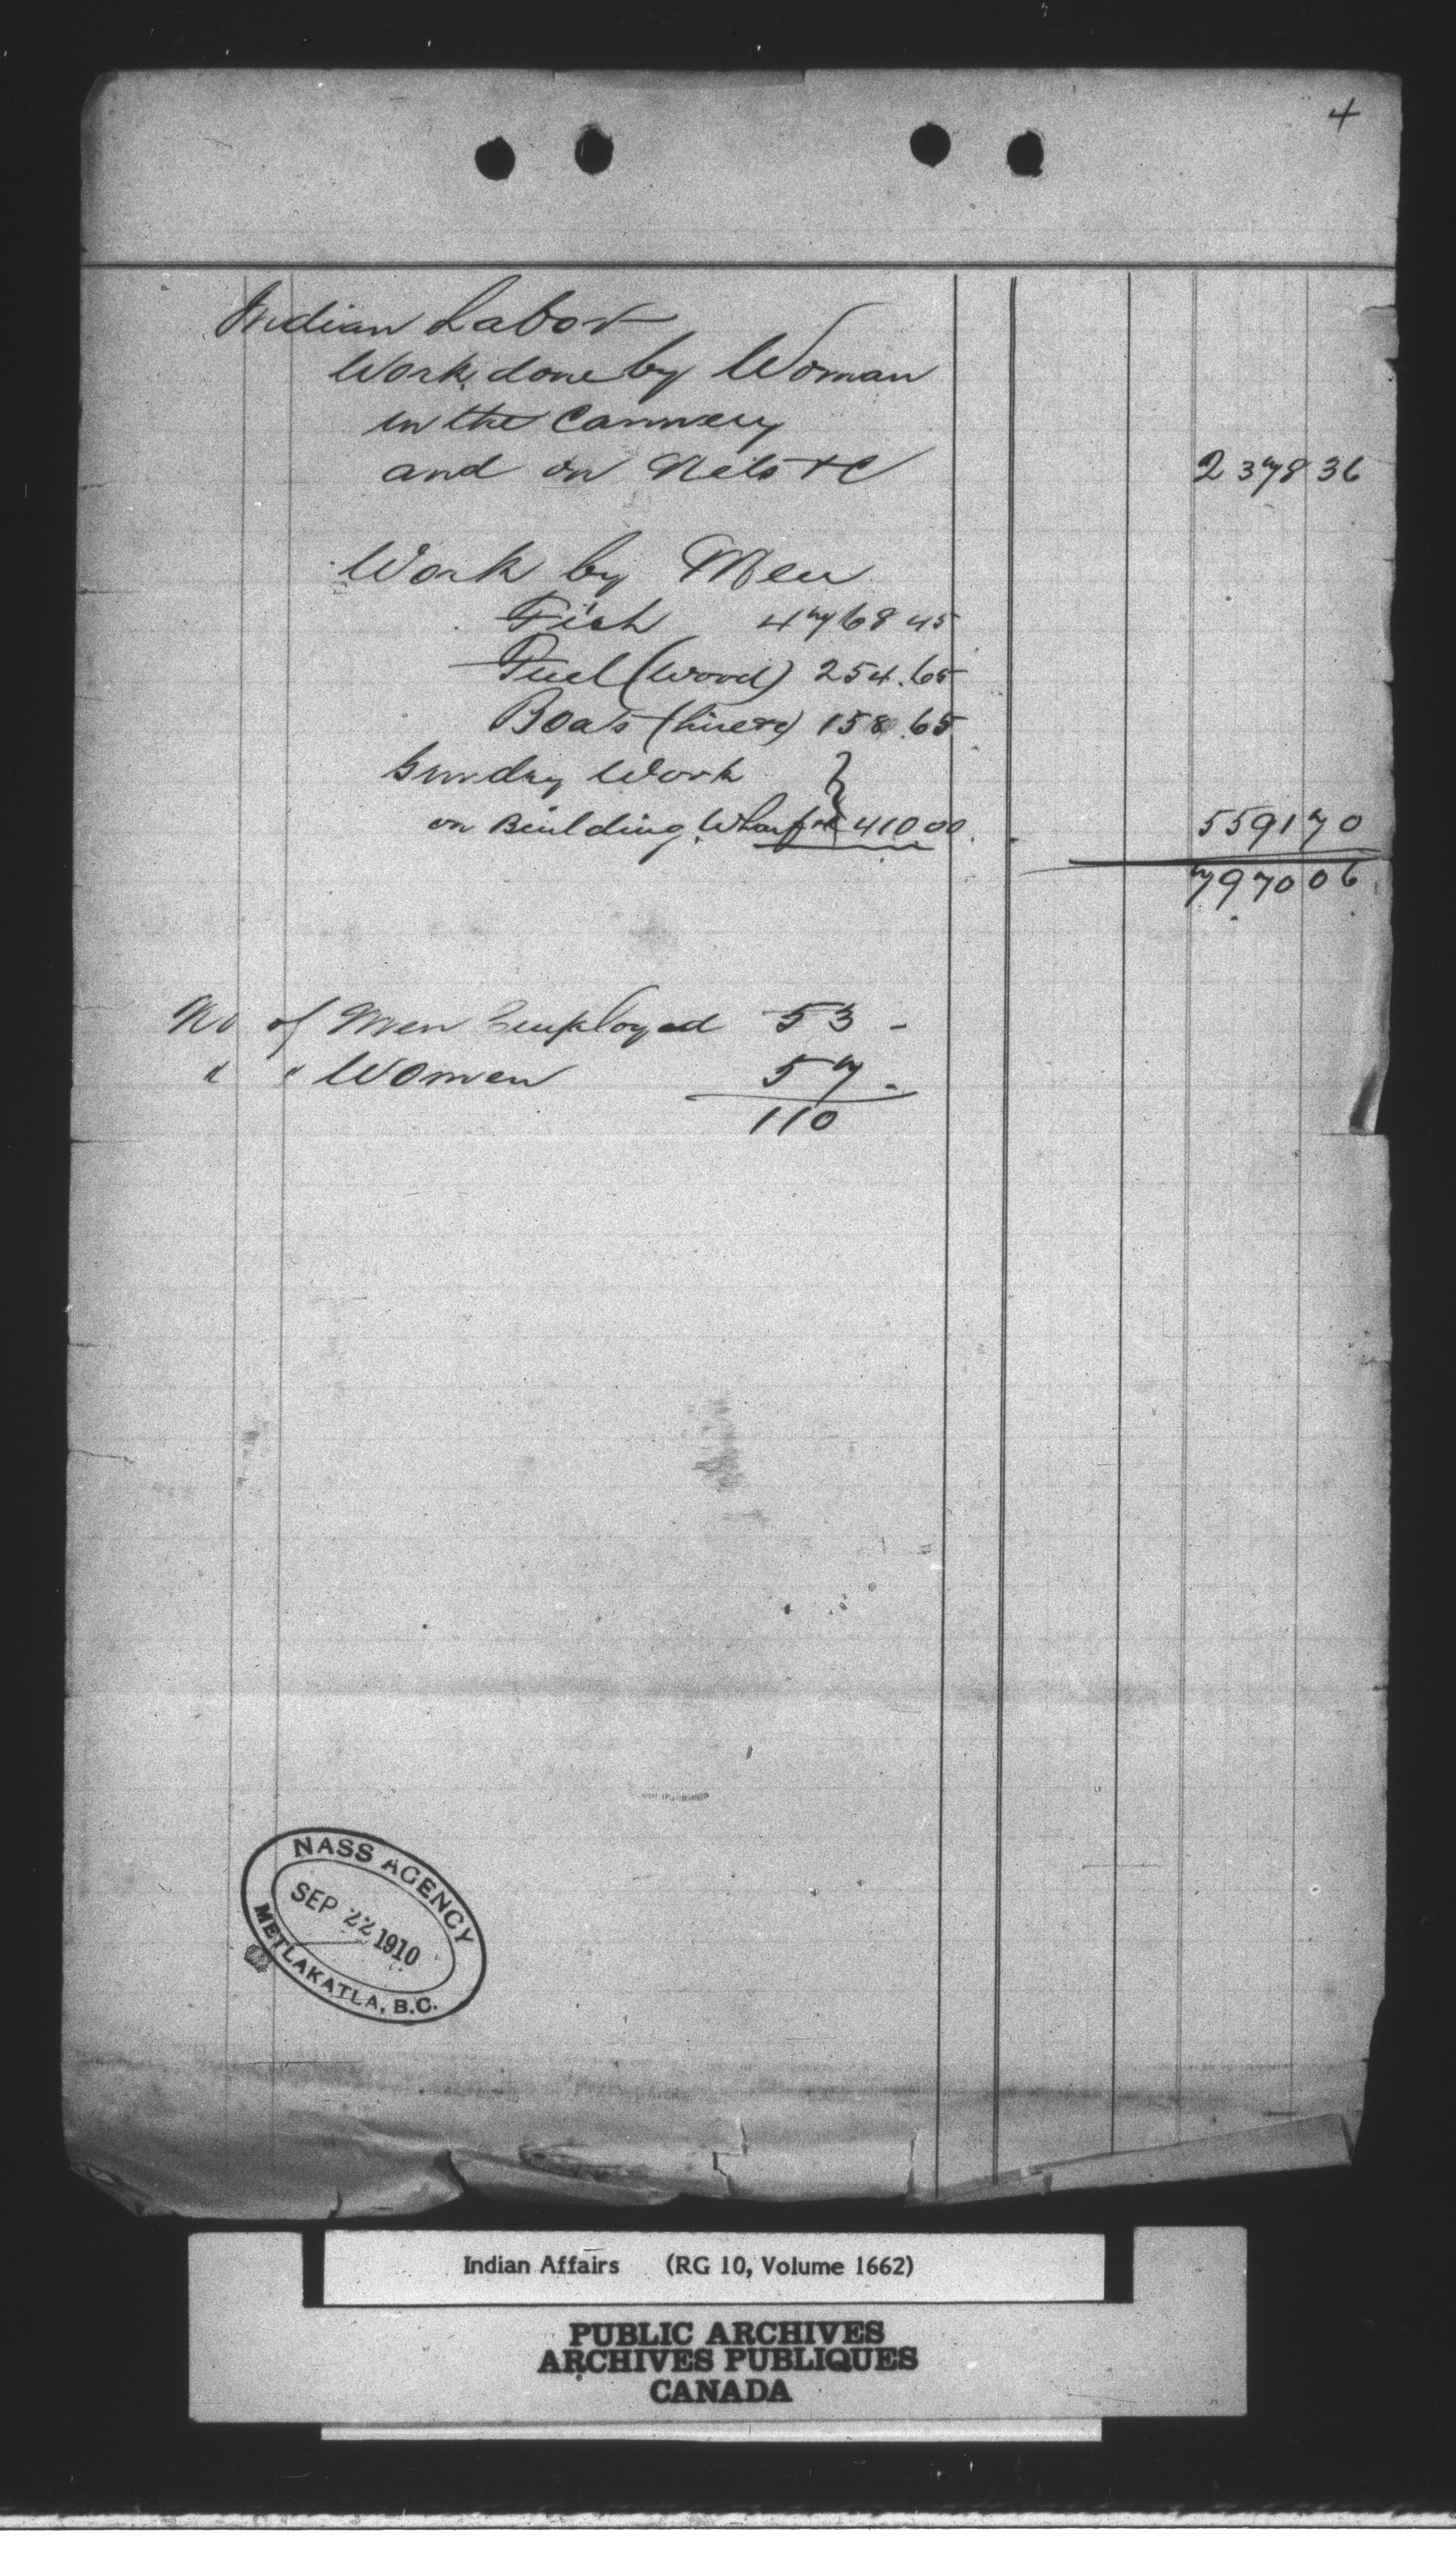 4
Indian Labor
Work done by Woman
in the Cannery
and on Nets &c 2378 36
Work by Men
Fish 4768 45
Fuel (wood) 254.65
Boats (hire &c) 158.65
Sundry Work
on Building Wharf &c 410 00 5591 70
7970 06
No of Men Employed 53 -
" " Women 57 -
110
NASS AGENCY
SEP 22 1910
METLAKATLA, B.C.
Indian Affairs (RG 10, Volume 1662)
PUBLIC ARCHIVES
ARCHIVES PUBLIQUES
CANADA